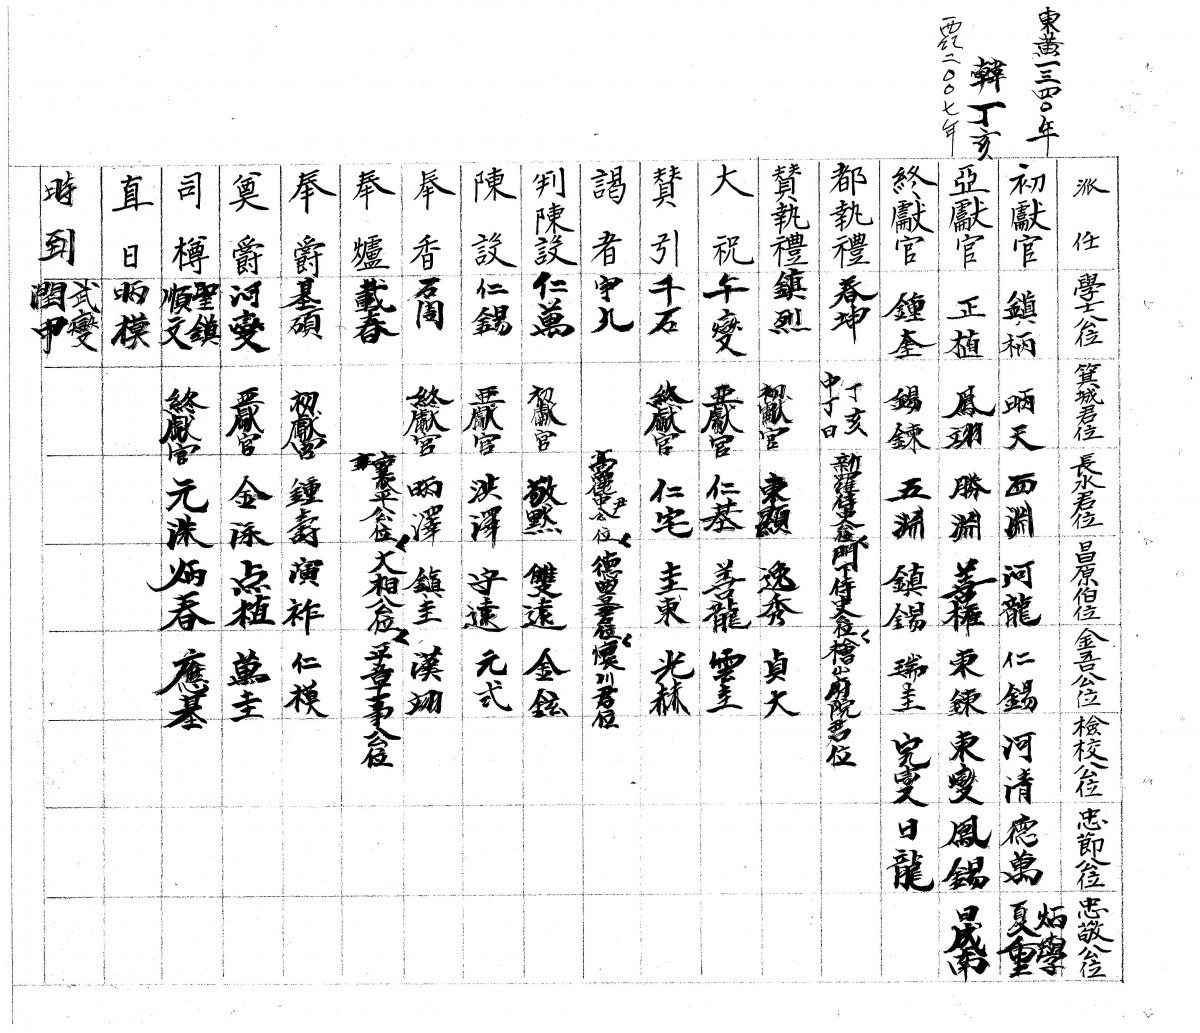 東黃一三四〇年
韓丁亥
西紀二〇〇七年
派任 學士公位 箕城君位 長水君位 昌原伯位 金吾公位 檢校公位 忠節公位 忠敬公位
初獻官 鎭柄 昞天 西淵 河龍 仁錫 河清 德萬 夏重 炳學
亞獻官 正植 鳳翊 勝淵 善種 東鍊 東燮 鳳錫
終獻官 鍾奎 錫鍊 五淵 鎭錫 瑞圭 完燮 日龍
都執禮 春坤 丁亥 中丁日 新羅侍史公位 門下侍史公位 檜山府院君位
贊執禮 鎭烈 初獻官 東顯 逸秀 貞大
大祝 午燮 亞獻官 仁基 善龍 雲圭
贊引 千石 終獻官 仁宅 圭東 光林
謁者 宇凡
判陳設 仁萬 初獻官 敬黙 雙遠 金鉉
陳設 仁錫 亞獻官 洪澤 守遠 元式
奉香 石周 終獻官 昞澤 鎭圭 漢翊
奉爐 載春 襄平公位 大相公位 平章事公位
奉爵 基碩 初獻官 鍾壽 演祚 仁模
奠爵 河燮 亞獻官 金泳 点植 萬圭
司樽 聖鎭 順文 終獻官 元洙 炳春 應基
直日 昞模
時到 武燮 潤甲